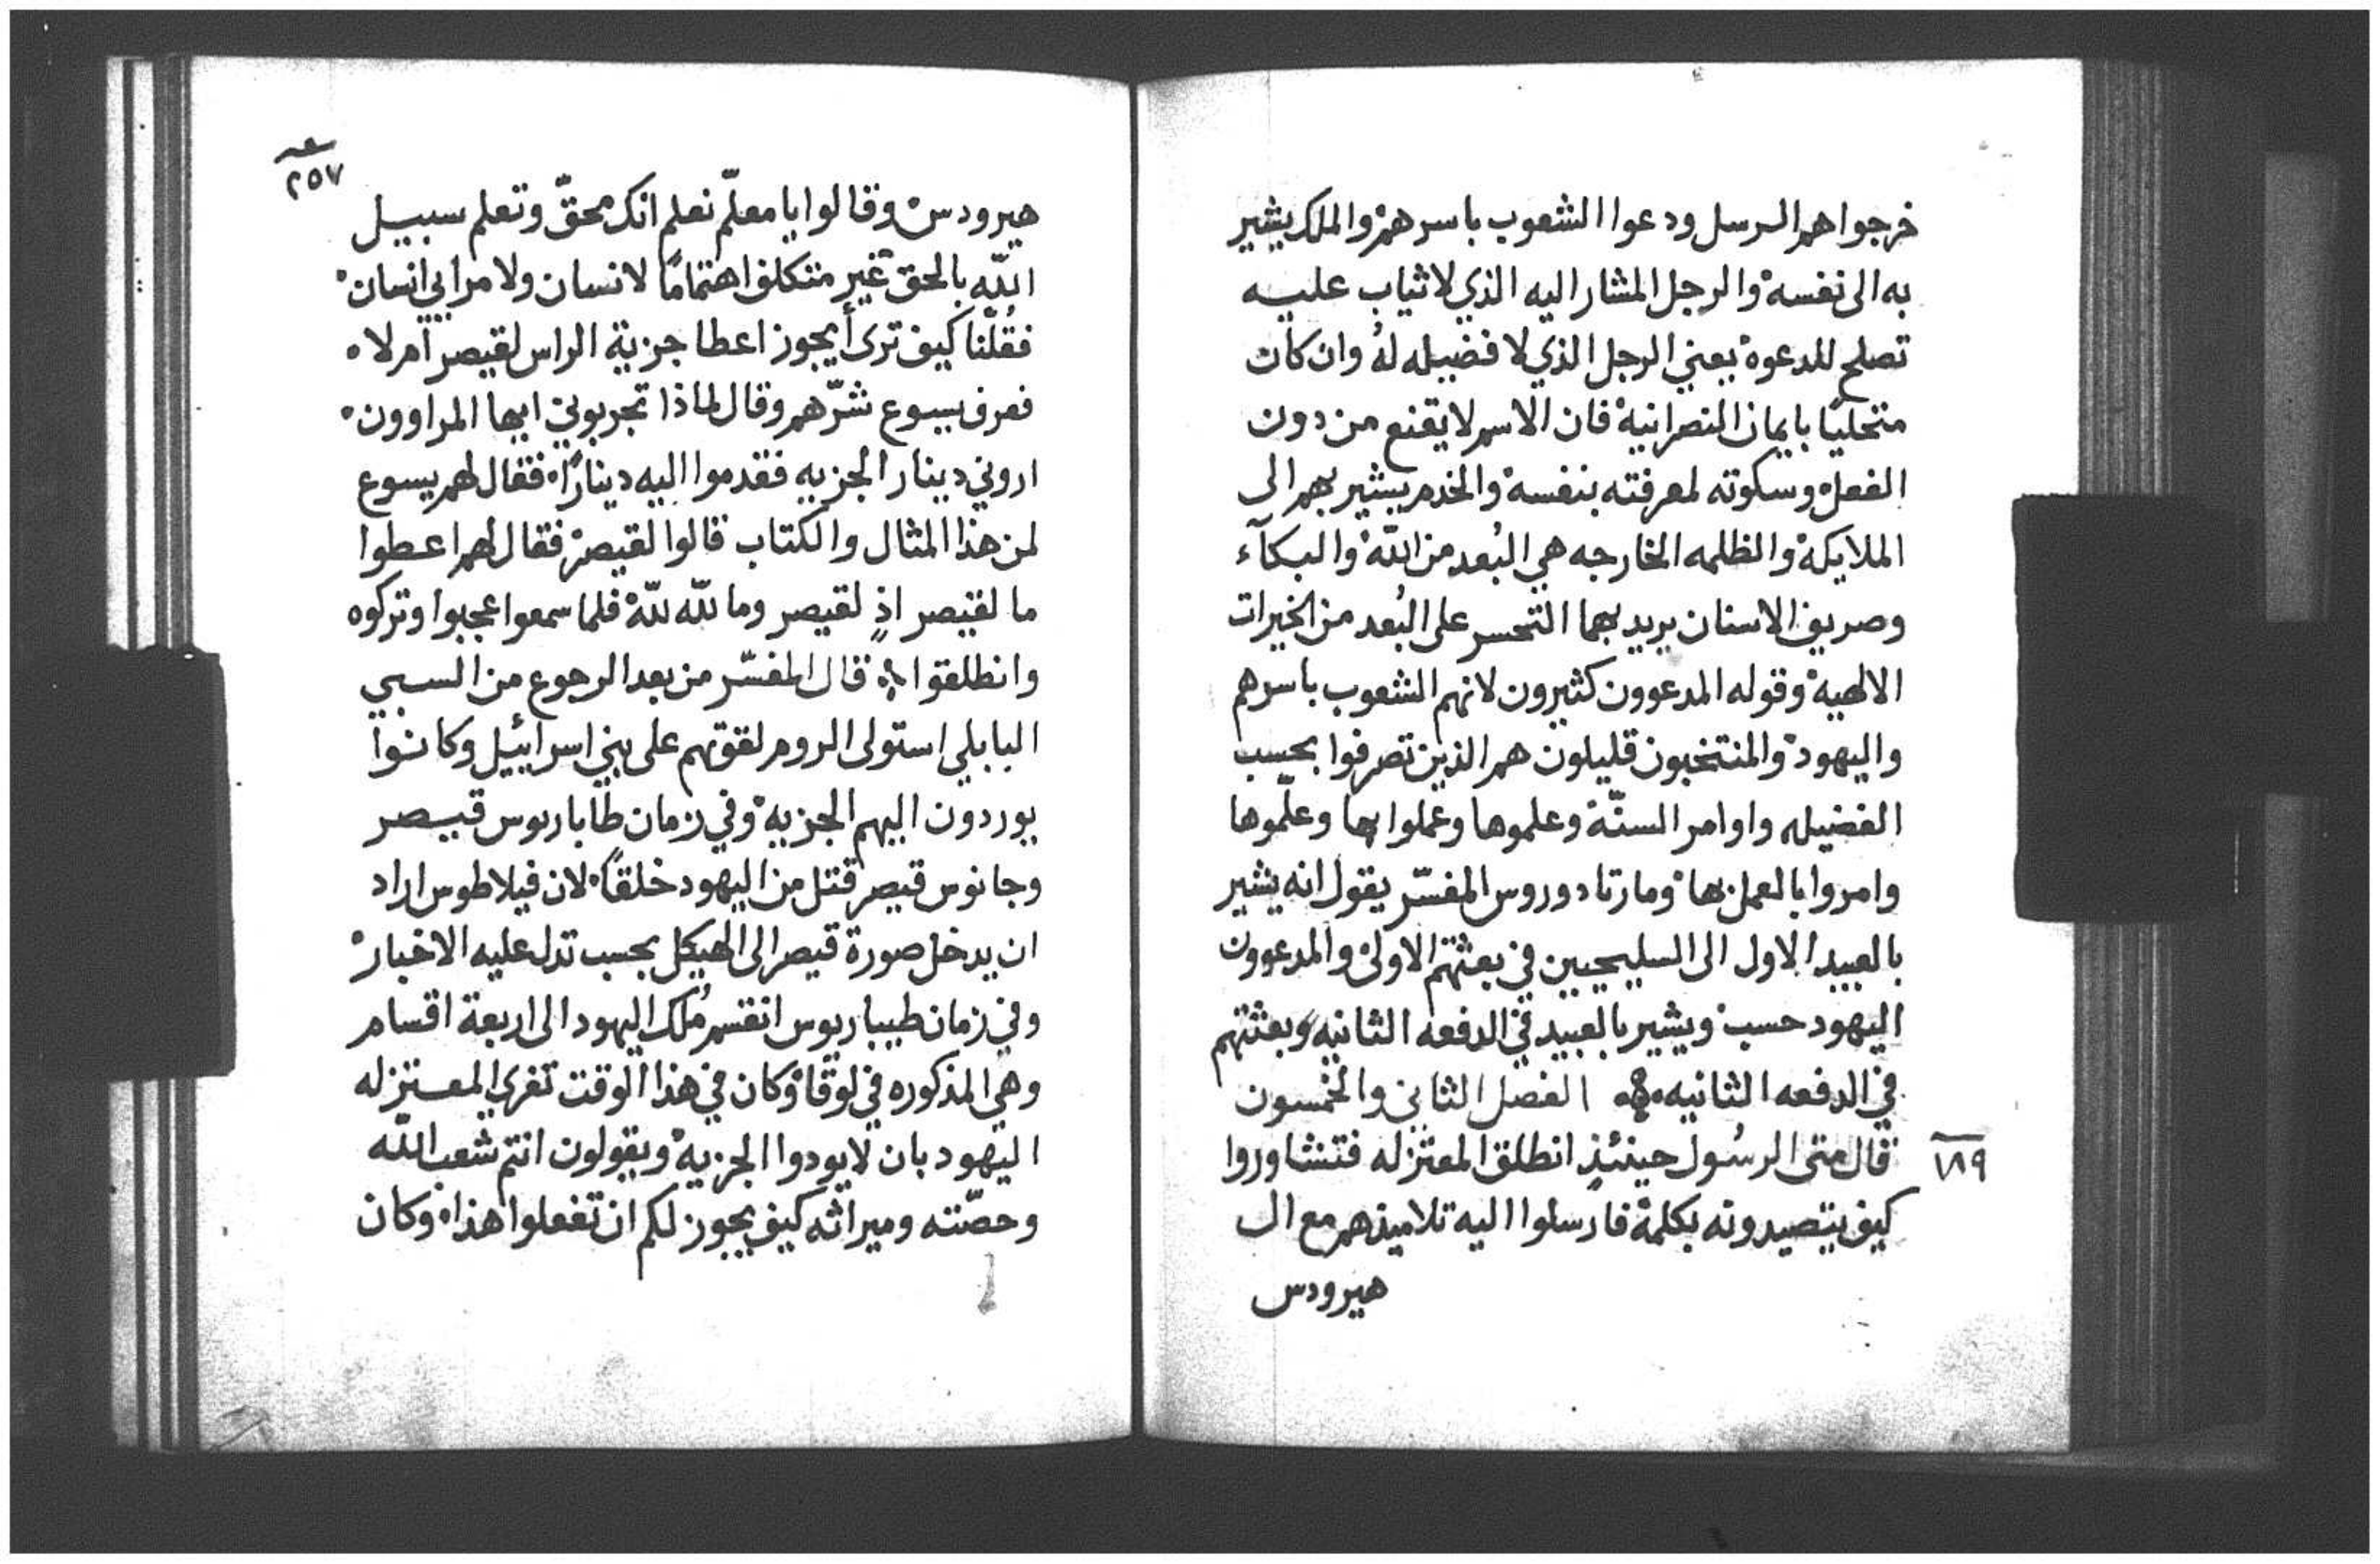 خرجوا هم الرسل ودعوا الشعوب باسرهم والملك يشير
به الى نفسه والرجل المشار اليه الذي لا ثياب عليه
تصلح للدعوة يعني الرجل الذي لا فضيله لهُ وان كان
متحليًا بايمان النصرانية فان الاسم لا يقنع من دون
الفعل وسكوته لمعرفته بنفسه والخدم يشير بهم الى
الملايكة والظلمه الخارجه هي البُعد من اللّه والبكآء
وصريف الاسنان يريد بهما التحسر على البُعد من الخيرات
الالهية وقوله المدعوون كثيرون لانهم الشعوب باسرهم
واليهود والمنتخبون قليلون هم الذين تصرفوا بحسب
الفضيله واوامر السنّة وعلموها وعملوا بها وعلّموها
وامروا بالعمل بها ومار تادوروس المفسّر يقول انه يشير
بالعبيد الاول الى السليحيين في بعثتهم الاولى والمدعوون
اليهود حسب ويشير بالعبيد في الدفعه الثانيه وبعثتهم
في الدفعه الثانيه الفصل الثاني والخمسون
١٨٩
قال متى الرسُول حينئذٍ انطلق المعتزله فتشاوروا
كيف يتصيدونه بكلمة فارسلوا اليه تلاميذهم مع ال
هيرودس
٢٥٧
هيرودس وقالوا يا معلّم نعلم انك محقّ وتعلم سبيل
اللّه بالحق غير متكلف اهتمامًا لانسان ولا مرابي انسان
فقُل لنا كيف ترى أيجوز اعطا جزية الراس لقيصر ام لا
فعرف يسوع شرّهم وقال لماذا تجربوني ايها المراوون
اروني دينار الجزيه فقدموا اليه دينارًا فقال لهم يسوع
لمن هذا المثال والكتاب قالوا لقيصر فقال لهم اعطوا
ما لقيصر اذٍ لقيصر وما للّه للّه فلما سمعوا عجبوا وتركوه
وانطلقوا قال المفسّر من بعد الرجوع من السبي
البابلي استولى الروم لقوتهم على بني اسرائيل وكانوا
يوردون اليهم الجزيه وفي زمان طاباريوس قيصر
وجانوس قيصر قتل من اليهود خلقًا لان فيلاطوس اراد
ان يدخل صورة قيصر الى الهيكل بحسب تدل عليه الاخبار
وفي زمان طيباريوس انقسم مُلك اليهود الى اربعة اقسام
وهي المذكوره في لوقا وكان في هذا الوقت تغري المعتزله
اليهود بان لا يودوا الجزيه ويقولون انتم شعب اللّه
وحصّته وميراثه كيف يجوز لكم ان تفعلوا هذا وكان